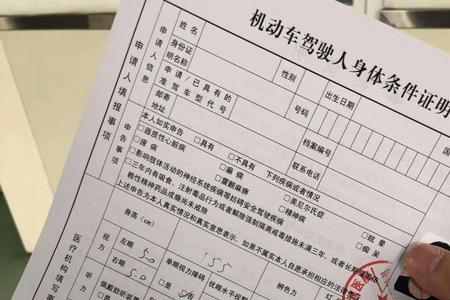 机动车驾驶人身体条件证明
申请人填报事项
申请人信息
姓名
性别
出生日期
国
身份证
明名称
号码
申请/已具有的
准驾车型代号
档案编号
邮寄
地址
联系电话
申告事项
本人如实申告 □具有 □不具有 下列疾病或者情况
□器质性心脏病 □癫痫 □美尼尔氏症 □眩晕
□癔病 □震颤麻痹 □精神病 □痴呆
□影响肢体活动的神经系统疾病等妨碍安全驾驶疾病
□三年内有吸食、注射毒品行为或者解除强制隔离戒毒措施未满三年,或者长期
赖性精神药品成瘾尚未戒除
上述申告为本人真实情况和真实意思表示,如果不属实本人自愿承担相应的法律
医疗机构填写事
身高(cm)
155
辨色力
视力
左眼 5.0
右眼 5.0
单眼视力障碍
□是
听力